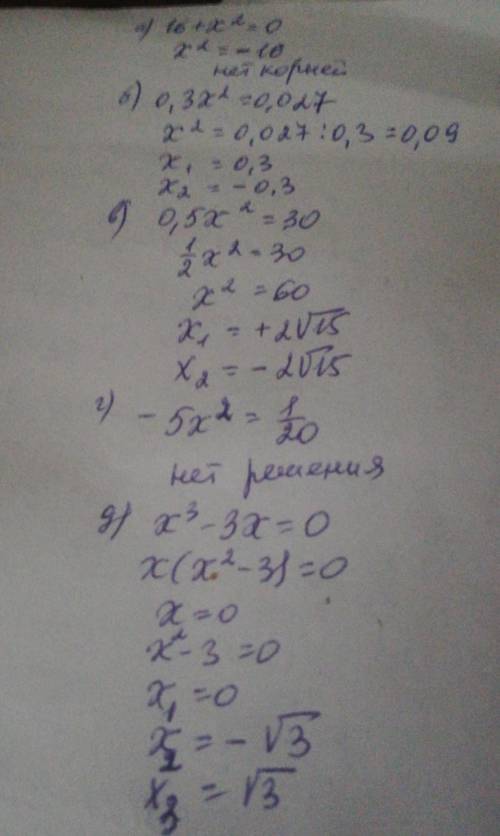 а) 16+x²=0
x²=-16
нет корней
б) 0,3x²=0,027
x²=0,027:0,3=0,09
x₁=0,3
x₂=-0,3
в) 0,5x²=30
1/2x²=30
x²=60
x₁=+2√15
x₂=-2√15
г) -5x²=1/20
нет решения
д) x³-3x=0
x(x²-3)=0
x=0
x²-3=0
x₁=0
x₂=-√3
x₃=√3